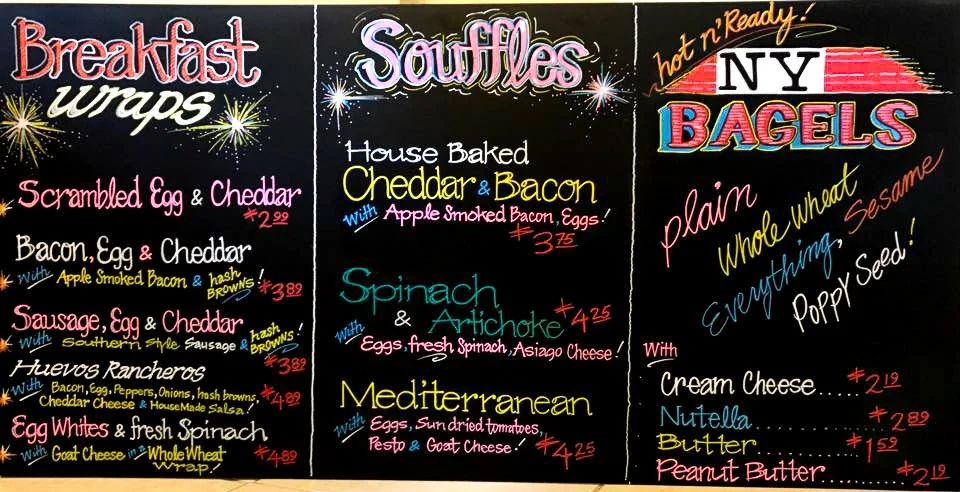 Breakfast
wraps
Scrambled Egg & Cheddar
$2.99
Bacon, Egg & Cheddar
With Apple Smoked Bacon & hash BROWNS! $3.89
Sausage, Egg & Cheddar
With Southern Style Sausage & hash BROWNS! $3.89
Huevos Rancheros
With Bacon, Egg, Peppers, Onions, hash browns,
Cheddar Cheese & House Made Salsa! $4.89
Egg Whites & fresh Spinach
With Goat Cheese in a Whole Wheat $4.89
Wrap!
Souffles
House Baked
Cheddar & Bacon
With Apple Smoked Bacon, Eggs!
$3.75
Spinach
& Artichoke $4.25
With Eggs, fresh Spinach, Asiago Cheese!
Mediterranean
With Eggs, Sun dried tomatoes,
Pesto & Goat Cheese! $4.25
hot n' Ready!
NY
BAGELS
plain
Whole Wheat
Everything, Sesame
Poppy Seed!
With
Cream Cheese..... $2.19
Nutella............... $2.89
Butter.............. $1.59
Peanut Butter........... $2.19